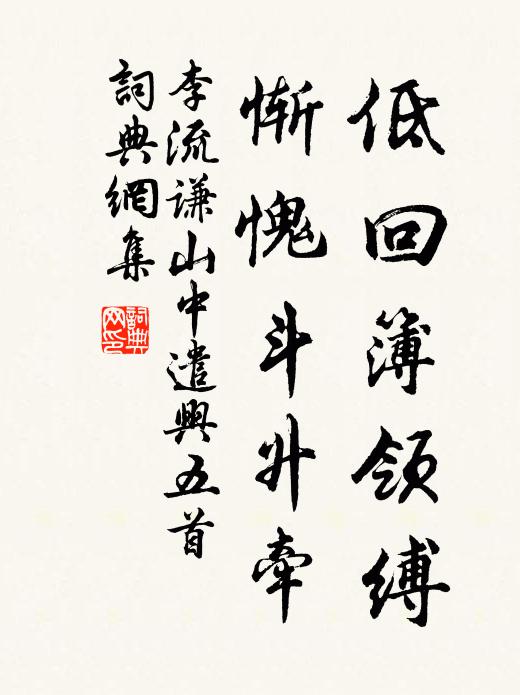 低回簿領縛
慚愧斗升牽
李流謙山中遣興五首
詞典網集
詞典网印